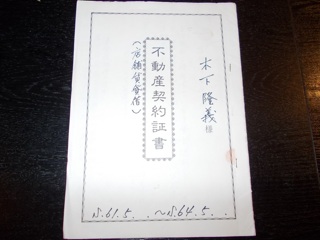 木下隆義様
不動産契約証書
(店舗賃貸借)
S.61.5. . ~S.64.5. .